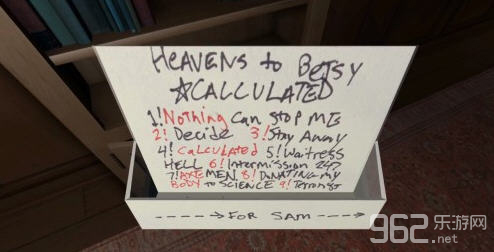 HEAVENS to BETSY
☆CALCULATED
1! Nothing Can stop ME
2! Decide 3! Stay Away
4! CALCULATED 5! Waitress
HELL 6! Intermission 247
7! AXEMEN 8! DONATING MY
BODY to SCIENCE 9! Terrorist
----→ FOR SAM ----→
962.乐游网
.net